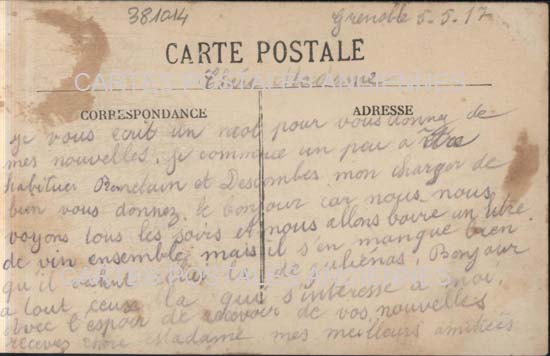 381014
Grenoble 5-5-17
CARTE POSTALE
Chère Madame
CARTES POSTALES ANCIENNES
CORRESPONDANCE
ADRESSE
Je vous ecrit un mot pour vous donner de
mes nouvelles. Je commence un peu a être
habituer et Descombes mon charger de
bien vous donnez le bonjour car nous nous
voyons tous les soirs et nous allons boire un litre
de vin ensemble mais il s'en manque bien
qu'il vaut celui la de Juliénas. Bonjour
CARTES POSTALES ANCIENNES
a tout ceux la qui s'interesse a moi.
Avec l'espoir de recevoir de vos nouvelles
recevez chère Madame mes meilleurs amitiées